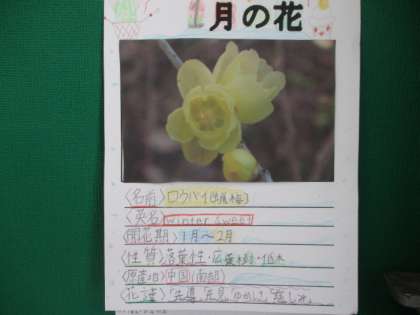 月の花
〈名前〉ロウバイ(蝋梅)
〈英名〉winter sweet
〈開花期〉1月〜2月
〈性質〉落葉性・広葉樹・低木
〈原産地〉中国(南部)
〈花言葉〉「先導、先見、ゆかしさ、慈しみ」